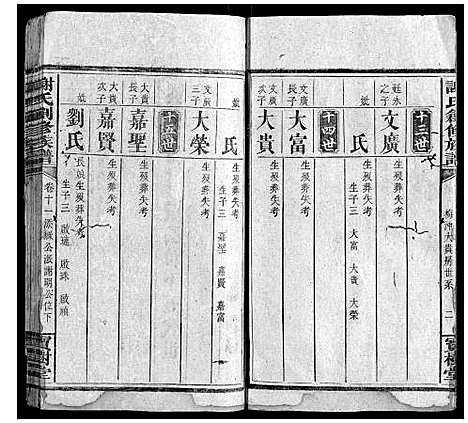 謝氏創修族譜
大貴房世系 二
寶樹堂
十三世
廷永之子
文廣
生歿葬失考
氏
生歿葬失考
生子三 大富 大貴 大榮
十四世
文廣長子
大富
生歿葬失考
文廣次子
大貴
生歿葬失考
氏
生歿葬失考
生子三 嘉聖 嘉賢 嘉富
文廣三子
大榮
生歿葬失考
十五世
大貴長子
嘉聖
生歿葬失考
大貴次子
嘉賢
生歿葬失考
劉氏
生歿葬失考
生子三 啟達 啟珠 啟順
謝氏創修族譜
卷十一 公派謝明公位下
寶樹堂